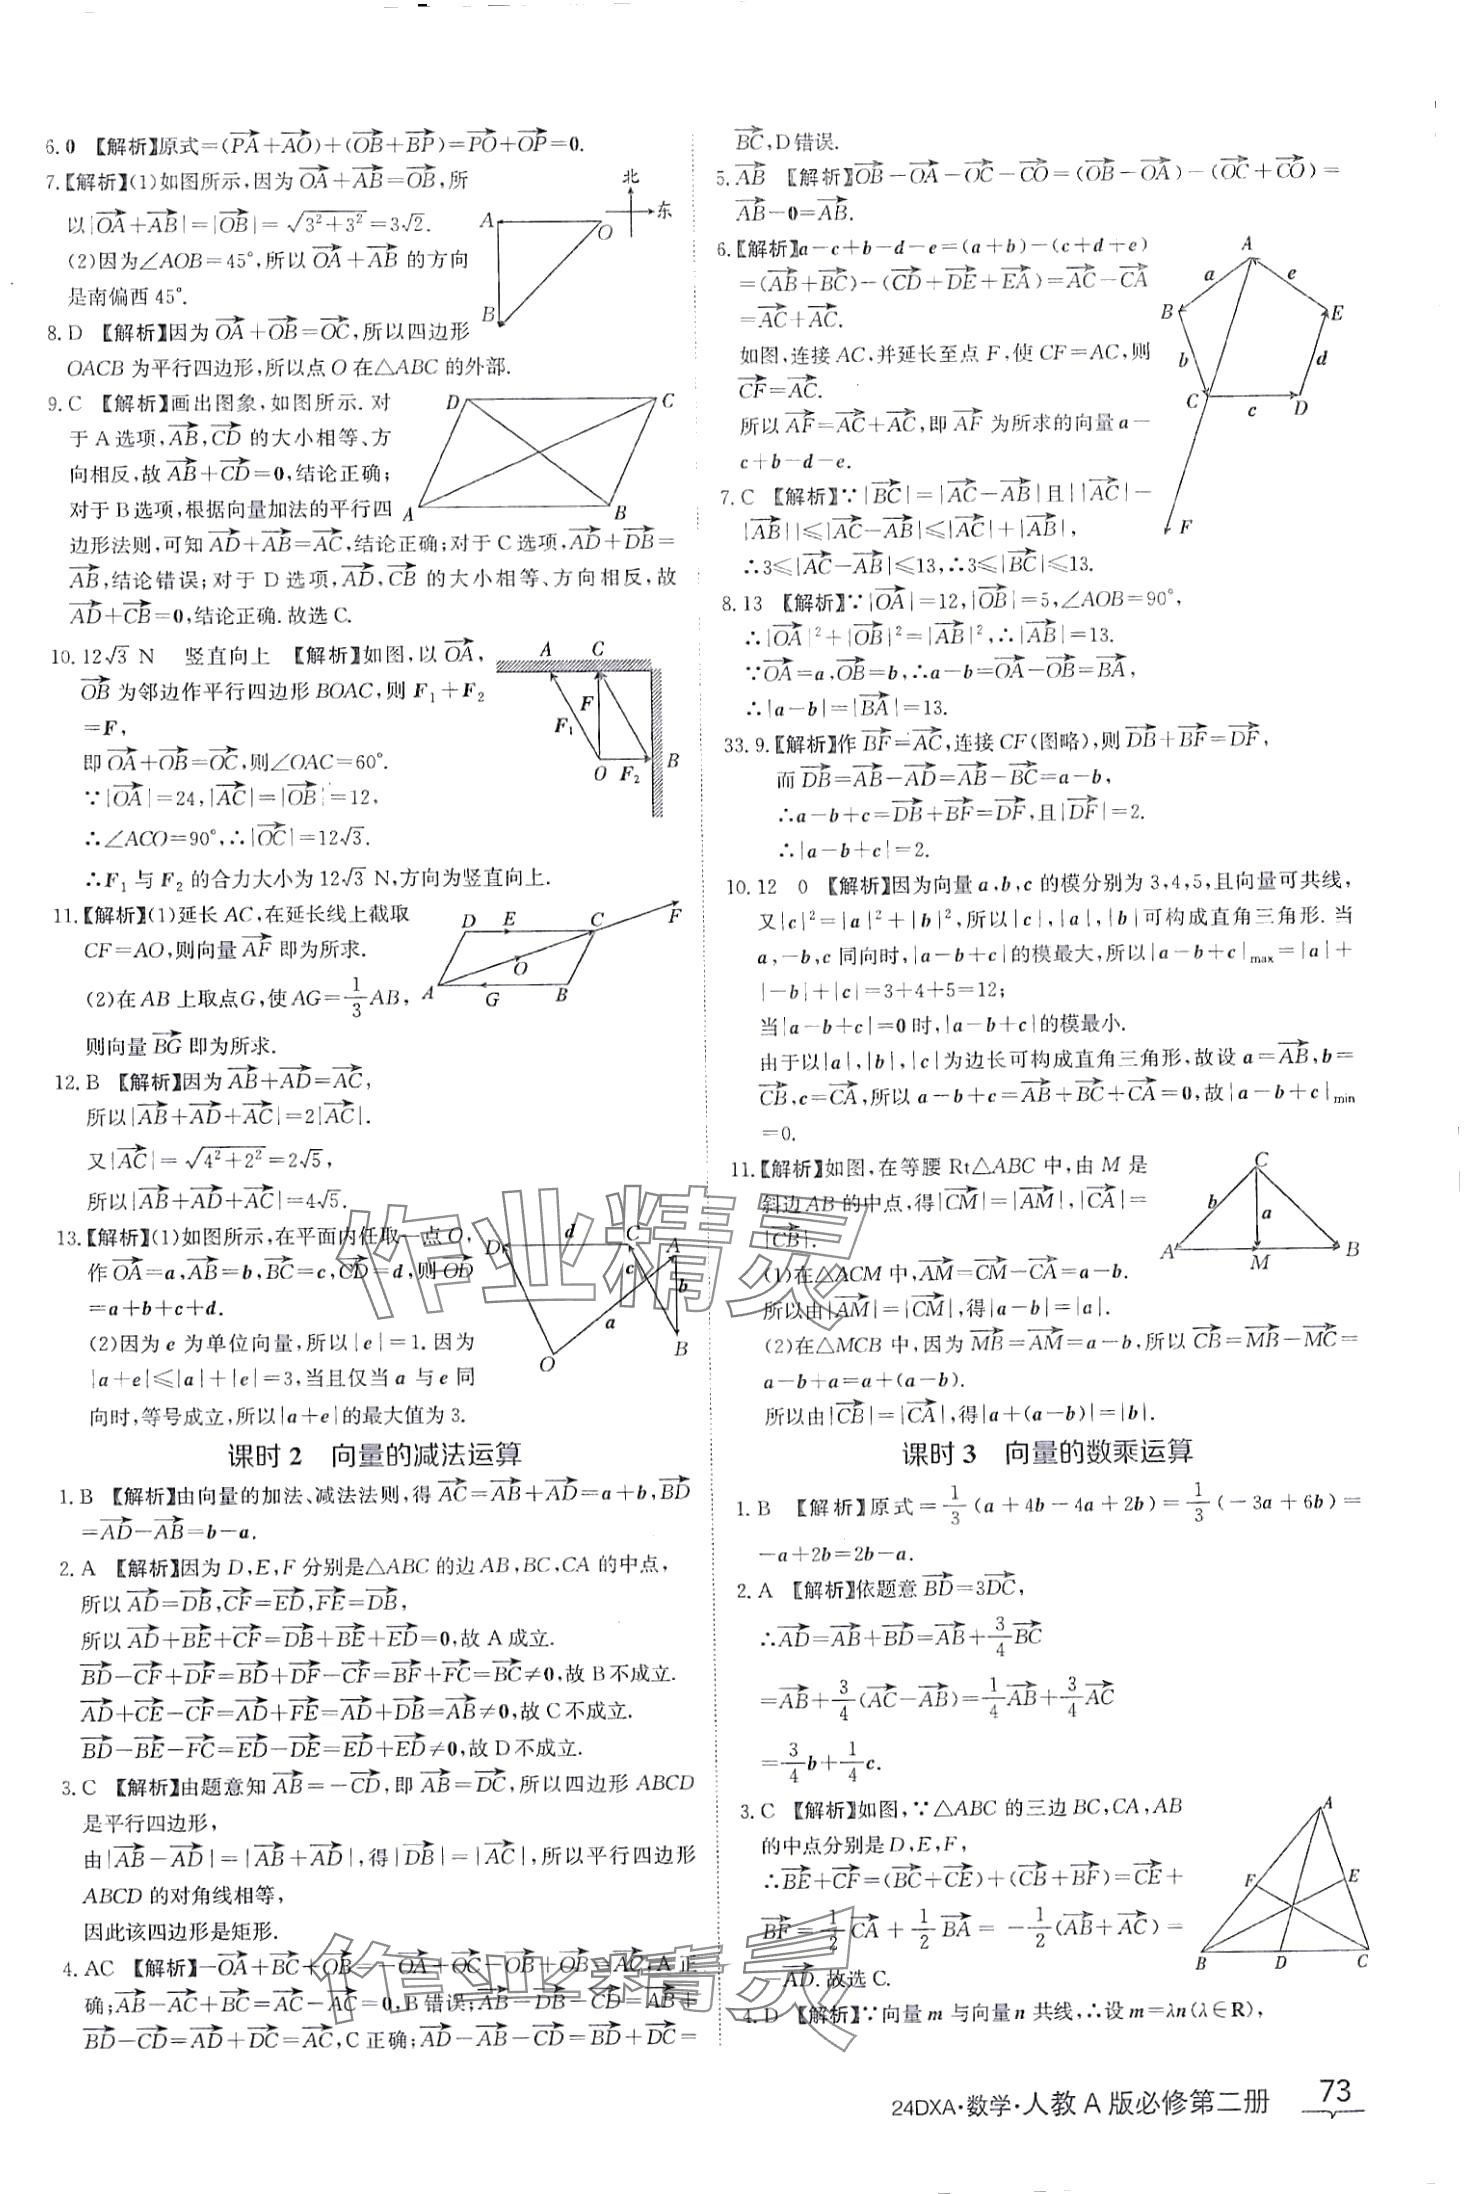 6.0 【解析】原式=(PA+AO)+(OB+BP)=PO+OP=0.
7.【解析】(1)如图所示,因为OA+AB=OB,所
以|OA+AB|=|OB|=√(3²+3²)=3√2.
(2)因为∠AOB=45°,所以OA+AB 的方向
是南偏西45°.
北
东
A
O
B
8. D 【解析】因为OA+OB=OC,所以四边形
OACB 为平行四边形,所以点O在△ABC 的外部.
9. C 【解析】画出图象,如图所示. 对
于A选项,AB,CD 的大小相等、方
向相反,故AB+CD=0,结论正确;
对于B选项,根据向量加法的平行四
边形法则,可知AD+AB=AC,结论正确;对于C选项,AD+DB=
AB,结论错误;对于 D 选项,AD,CB 的大小相等、方向相反,故
AD+CB=0,结论正确.故选C.
D
C
A
B
10. 12√3 N 竖直向上 【解析】如图,以OA,
OB为邻边作平行四边形BOAC,则 F₁+F₂
=F,
即OA+OB=OC,则∠OAC=60°.
∵|OA|=24,|AC|=|OB|=12,
∴∠ACO=90°,∴|OC|=12√3.
∴F₁ 与 F₂ 的合力大小为12√3 N,方向为竖直向上.
A C
F
F₁
O F₂ B
11.【解析】(1)延长AC,在延长线上截取
CF=AO,则向量AF 即为所求.
(2)在AB上取点G,使AG=1/3AB,
则向量BG即为所求.
D E C F
O
A G B
12. B 【解析】因为AB+AD=AC,
所以|AB+AD+AC|=2|AC|.
又|AC|=√(4²+2²)=2√5,
所以|AB+AD+AC|=4√5.
13.【解析】(1)如图所示,在平面内任取一点O,
作OA=a,AB=b,BC=c,CD=d,则OD
=a+b+c+d.
(2)因为e为单位向量,所以|e|=1.因为
|a+e|≤|a|+|e|=3,当且仅当a与e同
向时,等号成立,所以|a+e|的最大值为3.
D d C A
c
b
a
B
O
课时2 向量的减法运算
1. B 【解析】由向量的加法、减法法则,得AC=AB+AD=a+b,BD
=AD-AB=b-a.
2. A 【解析】因为D,E,F分别是△ABC的边AB,BC,CA的中点,
所以AD=DB,CF=ED,FE=DB,
所以AD+BE+CF=DB+BE+ED=0,故A成立.
BD-CF+DF=BD+DF-CF=BF+FC=BC≠0,故B不成立.
AD+CE-CF=AD+FE=AD+DB=AB≠0,故C不成立.
BD-BE-FC=ED-DE=ED+ED≠0,故D不成立.
3. C 【解析】由题意知AB=-CD,即AB=DC,所以四边形ABCD
是平行四边形,
由|AB-AD|=|AB+AD|,得|DB|=|AC|,所以平行四边形
ABCD的对角线相等,
因此该四边形是矩形.
4. AC 【解析】-OA+BC+OB=-OA+OC-OB+OB=AC,A正
确;AB-AC+BC=AC-AC=0,B错误;AB-DB-CD=AB+
BD-CD=AD+DC=AC,C正确;AD-AB-CD=BD+DC=
BC,D错误.
5. AB 【解析】OB-OA-OC-CO=(OB-OA)-(OC+CO)=
AB-0=AB.
6.【解析】a-c+b-d-e=(a+b)-(c+d+e)
=(AB+BC)-(CD+DE+EA)=AC-CA
=AC+AC.
如图,连接AC,并延长至点F,使CF=AC,则
CF=AC.
所以AF=AC+AC,即AF 为所求的向量a-
c+b-d-e.
A
a e
B E
b d
C c D
F
7. C 【解析】∵|BC|=|AC-AB|且||AC|-
|AB||≤|AC-AB|≤|AC|+|AB|,
∴3≤|AC-AB|≤13,∴3≤|BC|≤13.
8. 13 【解析】∵|OA|=12,|OB|=5,∠AOB=90°,
∴|OA|²+|OB|²=|AB|²,∴|AB|=13.
∵OA=a,OB=b,∴a-b=OA-OB=BA,
∴|a-b|=|BA|=13.
33. 9.【解析】作BF=AC,连接CF(图略),则DB+BF=DF,
而DB=AB-AD=AB-BC=a-b,
∴a-b+c=DB+BF=DF,且|DF|=2.
∴|a-b+c|=2.
10. 12 0 【解析】因为向量a,b,c的模分别为3,4,5,且向量可共线,
又|c|²=|a|²+|b|²,所以|c|,|a|,|b|可构成直角三角形. 当
a,-b,c同向时,|a-b+c|的模最大,所以|a-b+c|max=|a|+
|-b|+|c|=3+4+5=12;
当|a-b+c|=0时,|a-b+c|的模最小.
由于以|a|,|b|,|c|为边长可构成直角三角形,故设a=AB,b=
CB,c=CA,所以a-b+c=AB+BC+CA=0,故|a-b+c|min
=0.
11.【解析】如图,在等腰Rt△ABC中,由M是
斜边AB的中点,得|CM|=|AM|,|CA|=
|CB|.
(1)在△ACM中,AM=CM-CA=a-b.
所以由|AM|=|CM|,得|a-b|=|a|.
(2)在△MCB中,因为MB=AM=a-b,所以CB=MB-MC=
a-b+a=a+(a-b).
所以由|CB|=|CA|,得|a+(a-b)|=|b|.
C
b
a
A M B
课时3 向量的数乘运算
1. B 【解析】原式=1/3(a+4b-4a+2b)=1/3(-3a+6b)=
-a+2b=2b-a.
2. A 【解析】依题意BD=3DC,
∴AD=AB+BD=AB+3/4BC
=AB+3/4(AC-AB)=1/4AB+3/4AC
=3/4b+1/4c.
3. C 【解析】如图,∵△ABC的三边BC,CA,AB
的中点分别是D,E,F,
∴BE+CF=(BC+CE)+(CB+BF)=CE+
BF=1/2CA+1/2BA=-1/2(AB+AC)=
-AD.故选C.
A
F E
B D C
4. D 【解析】∵向量m与向量n共线,∴设m=λn(λ∈R),
24DXA·数学·人教A版必修第二册 73
作业精灵
作业精灵